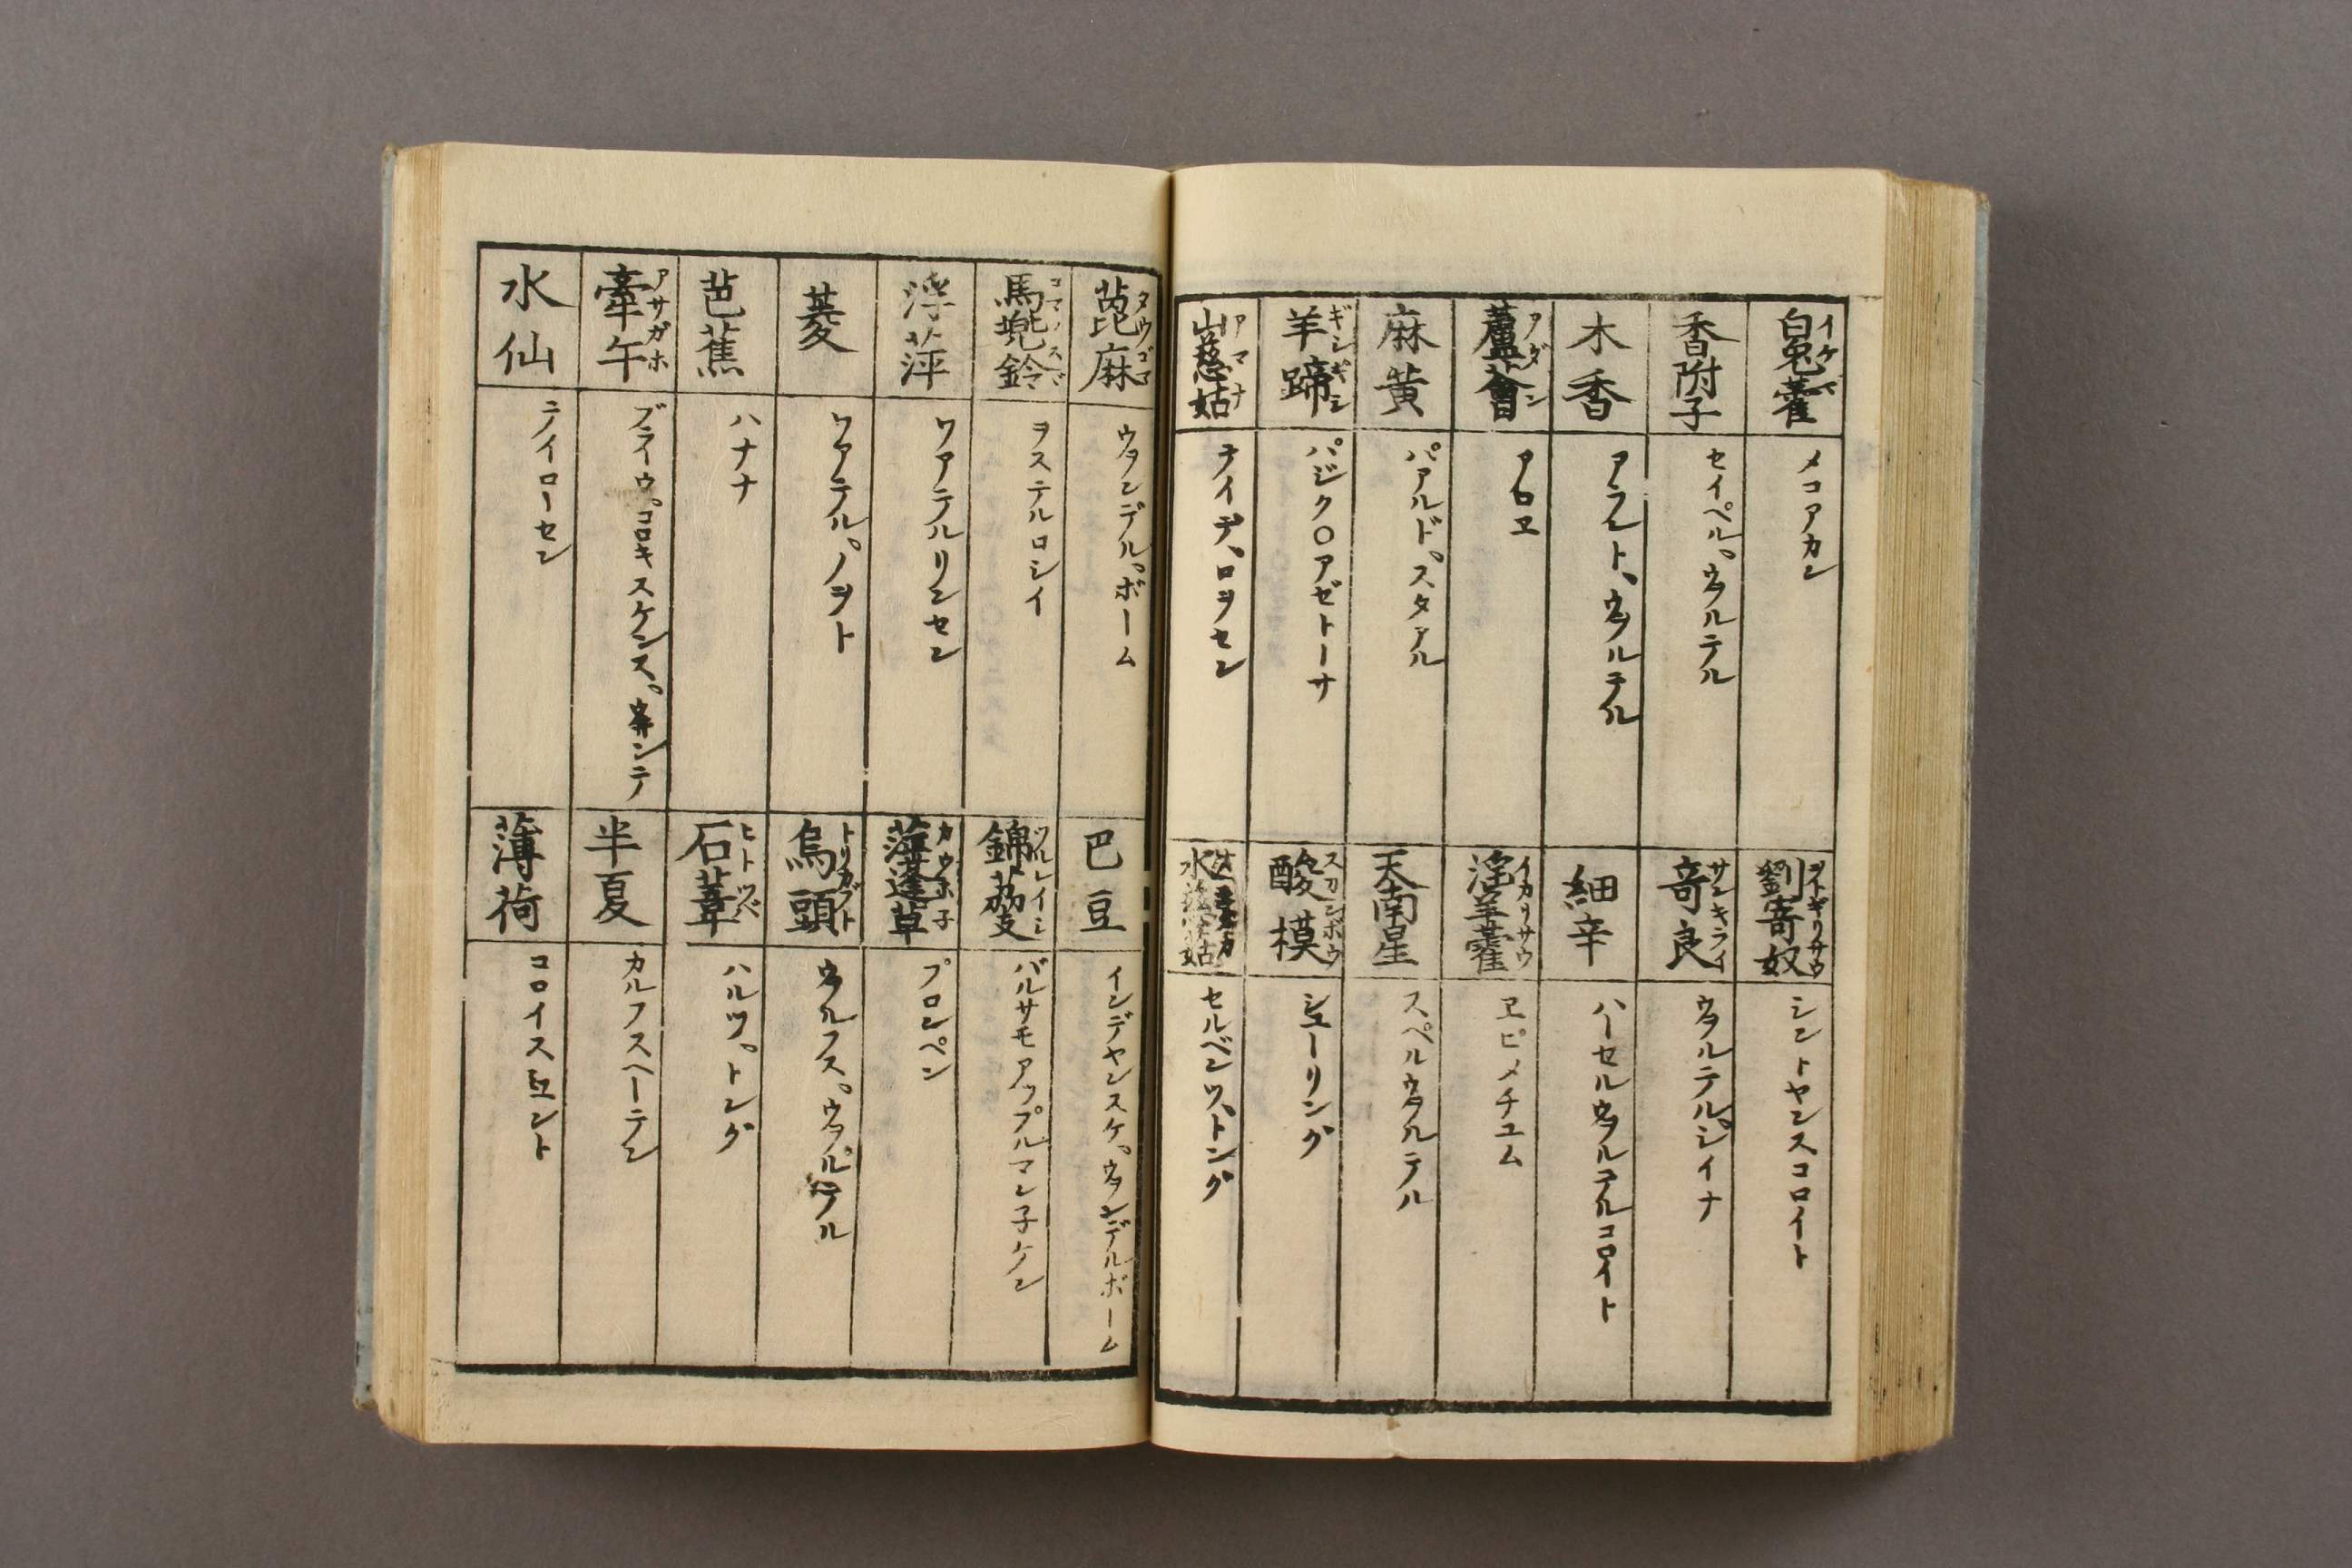 白兎藿 イケマ
メコアカン
香附子
セイペル゜ウヲルテル
木香
アラント、ウヲルテル
蘆薈 アダン
アロヱ
麻黄
パアルド゜スタアル
羊蹄 ギシギシ
パジク○アゼトーサ
山慈姑 アマナ
テイデ、ロヲセン
劉寄奴 ヲトギリサウ
シントヤンスコロイト
竒良 サンキライ
ウヲルテル゜シイナ
細辛
ハーセルウヲルテルコロイト
淫羊藿 イカリサウ
ヱピメチユム
天南星
スペルウヲルテル
酸模 スカンボウ
シユーリング
水慈姑
セルベンツ、トング
萞麻 タウゴマ
ウヲンデル゜ボーム
馬兠鈴 コマノスヾ
ヲステルロシイ
浮萍
ワアテルリンセン
菱
ワアテル゜ノヲト
芭蕉
ハナナ
牽午 アサガホ
ブライウ゜コロキスケンス゜ウヰンテ
水仙
テイローセン
巴豆
インデヤンスケ゜ウヲンデルボーム
錦茘支 ツルレイシ
バルサモアツプルマン子ケン
萍蓬草 カウホ子
プロンペン
烏頭 トリカブト
ウヲルフス゜ウヲルテル
石葦 ヒトツバ
ハルツ゜トング
半夏
カルフスヘーテン
薄荷
コロイスミユント